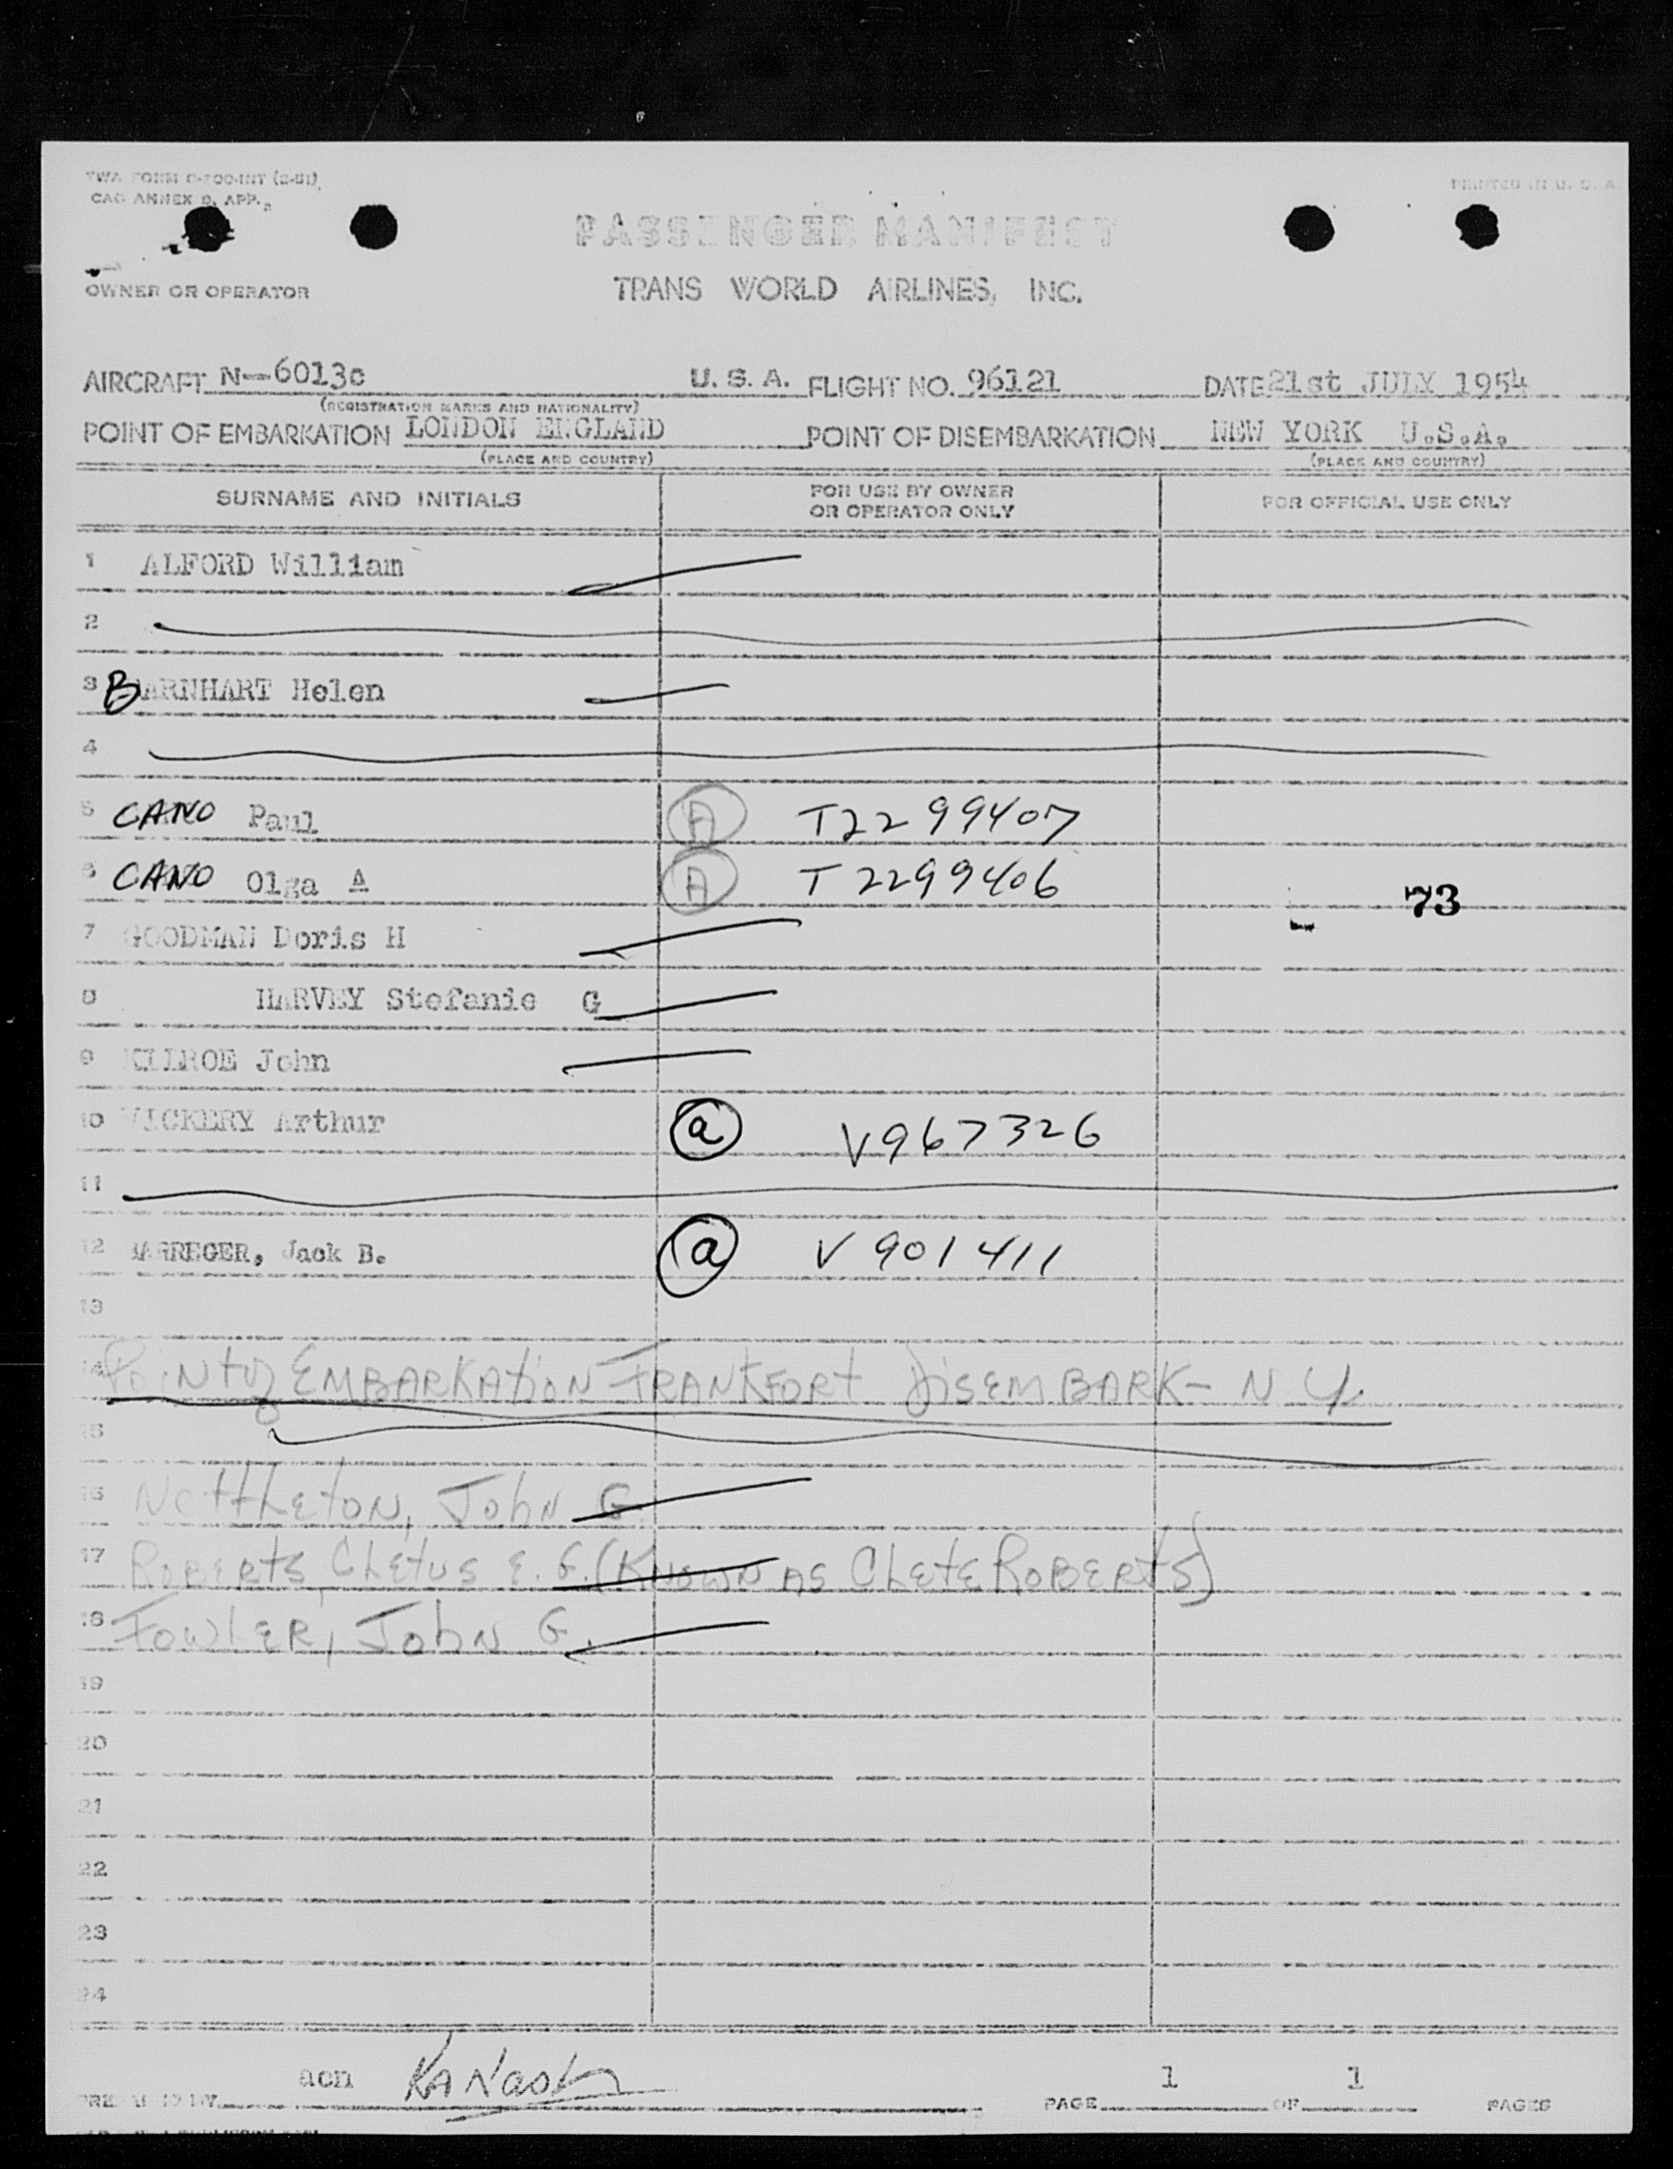 TWA FORM
CAO ANNEX 9, APP.
PRINTED IN U. S. A.
PASSENGER MANIFEST
OWNER OR OPERATOR
TRANS WORLD AIRLINES, INC.
AIRCRAFT N--6013c U. S. A. FLIGHT NO. 96121 DATE 21st JULY 1954
(REGISTRATION MARKS AND NATIONALITY)
POINT OF EMBARKATION LONDON ENGLAND POINT OF DISEMBARKATION NEW YORK U.S.A.
(PLACE AND COUNTRY) (PLACE AND COUNTRY)
SURNAME AND INITIALS FOR USE BY OWNER OR OPERATOR ONLY FOR OFFICIAL USE ONLY
1 ALFORD William
2
3 BARNHART Helen
4
5 CANO Paul A T2299407
6 CANO Olga A A T2299406
73
7 GOODMAN Doris H
8 HARVEY Stefanie G
9 KILROE John
10 VICKERY Arthur a V967326
11
12 Jack B. a V901411
13
14 Point of EMBARKATION FRANKFORT DISEMBARK - N Y.
15
16 Nettleton, John G.
17 ROBERTS, CLETUS E. G. (KNOWN AS CLETE ROBERTS)
18 FOWLER, JOHN G.
19
20
21
22
23
24
acn
PREPARED BY PAGE 1 OF 1 PAGES